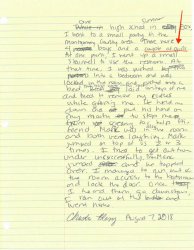 One summer
in high school in
I went to a small party in the
Montgomery County area. There were
4 boys and a couple of girls
at the party. I went up a small
stairwell to use the restroom. At
that time, I was pushed
into a bedroom and was
locked in the room,
bed. laid on top of me
and tried to remove my clothes
while groping me. He held me
down and put his hand on
my mouth to stop me
from screaming for help. His
friend Mark was in the room
and both were laughing. Mark
jumped on top of us 2 or 3
times. I tried to get out from
under unsuccessfully. Mark
jumped and we toppled
over. I managed to run out of
the room across to the bathroom
and lock the door. Once
I heard them go downstairs,
I ran out of the house and
went home.
August 7, 2018